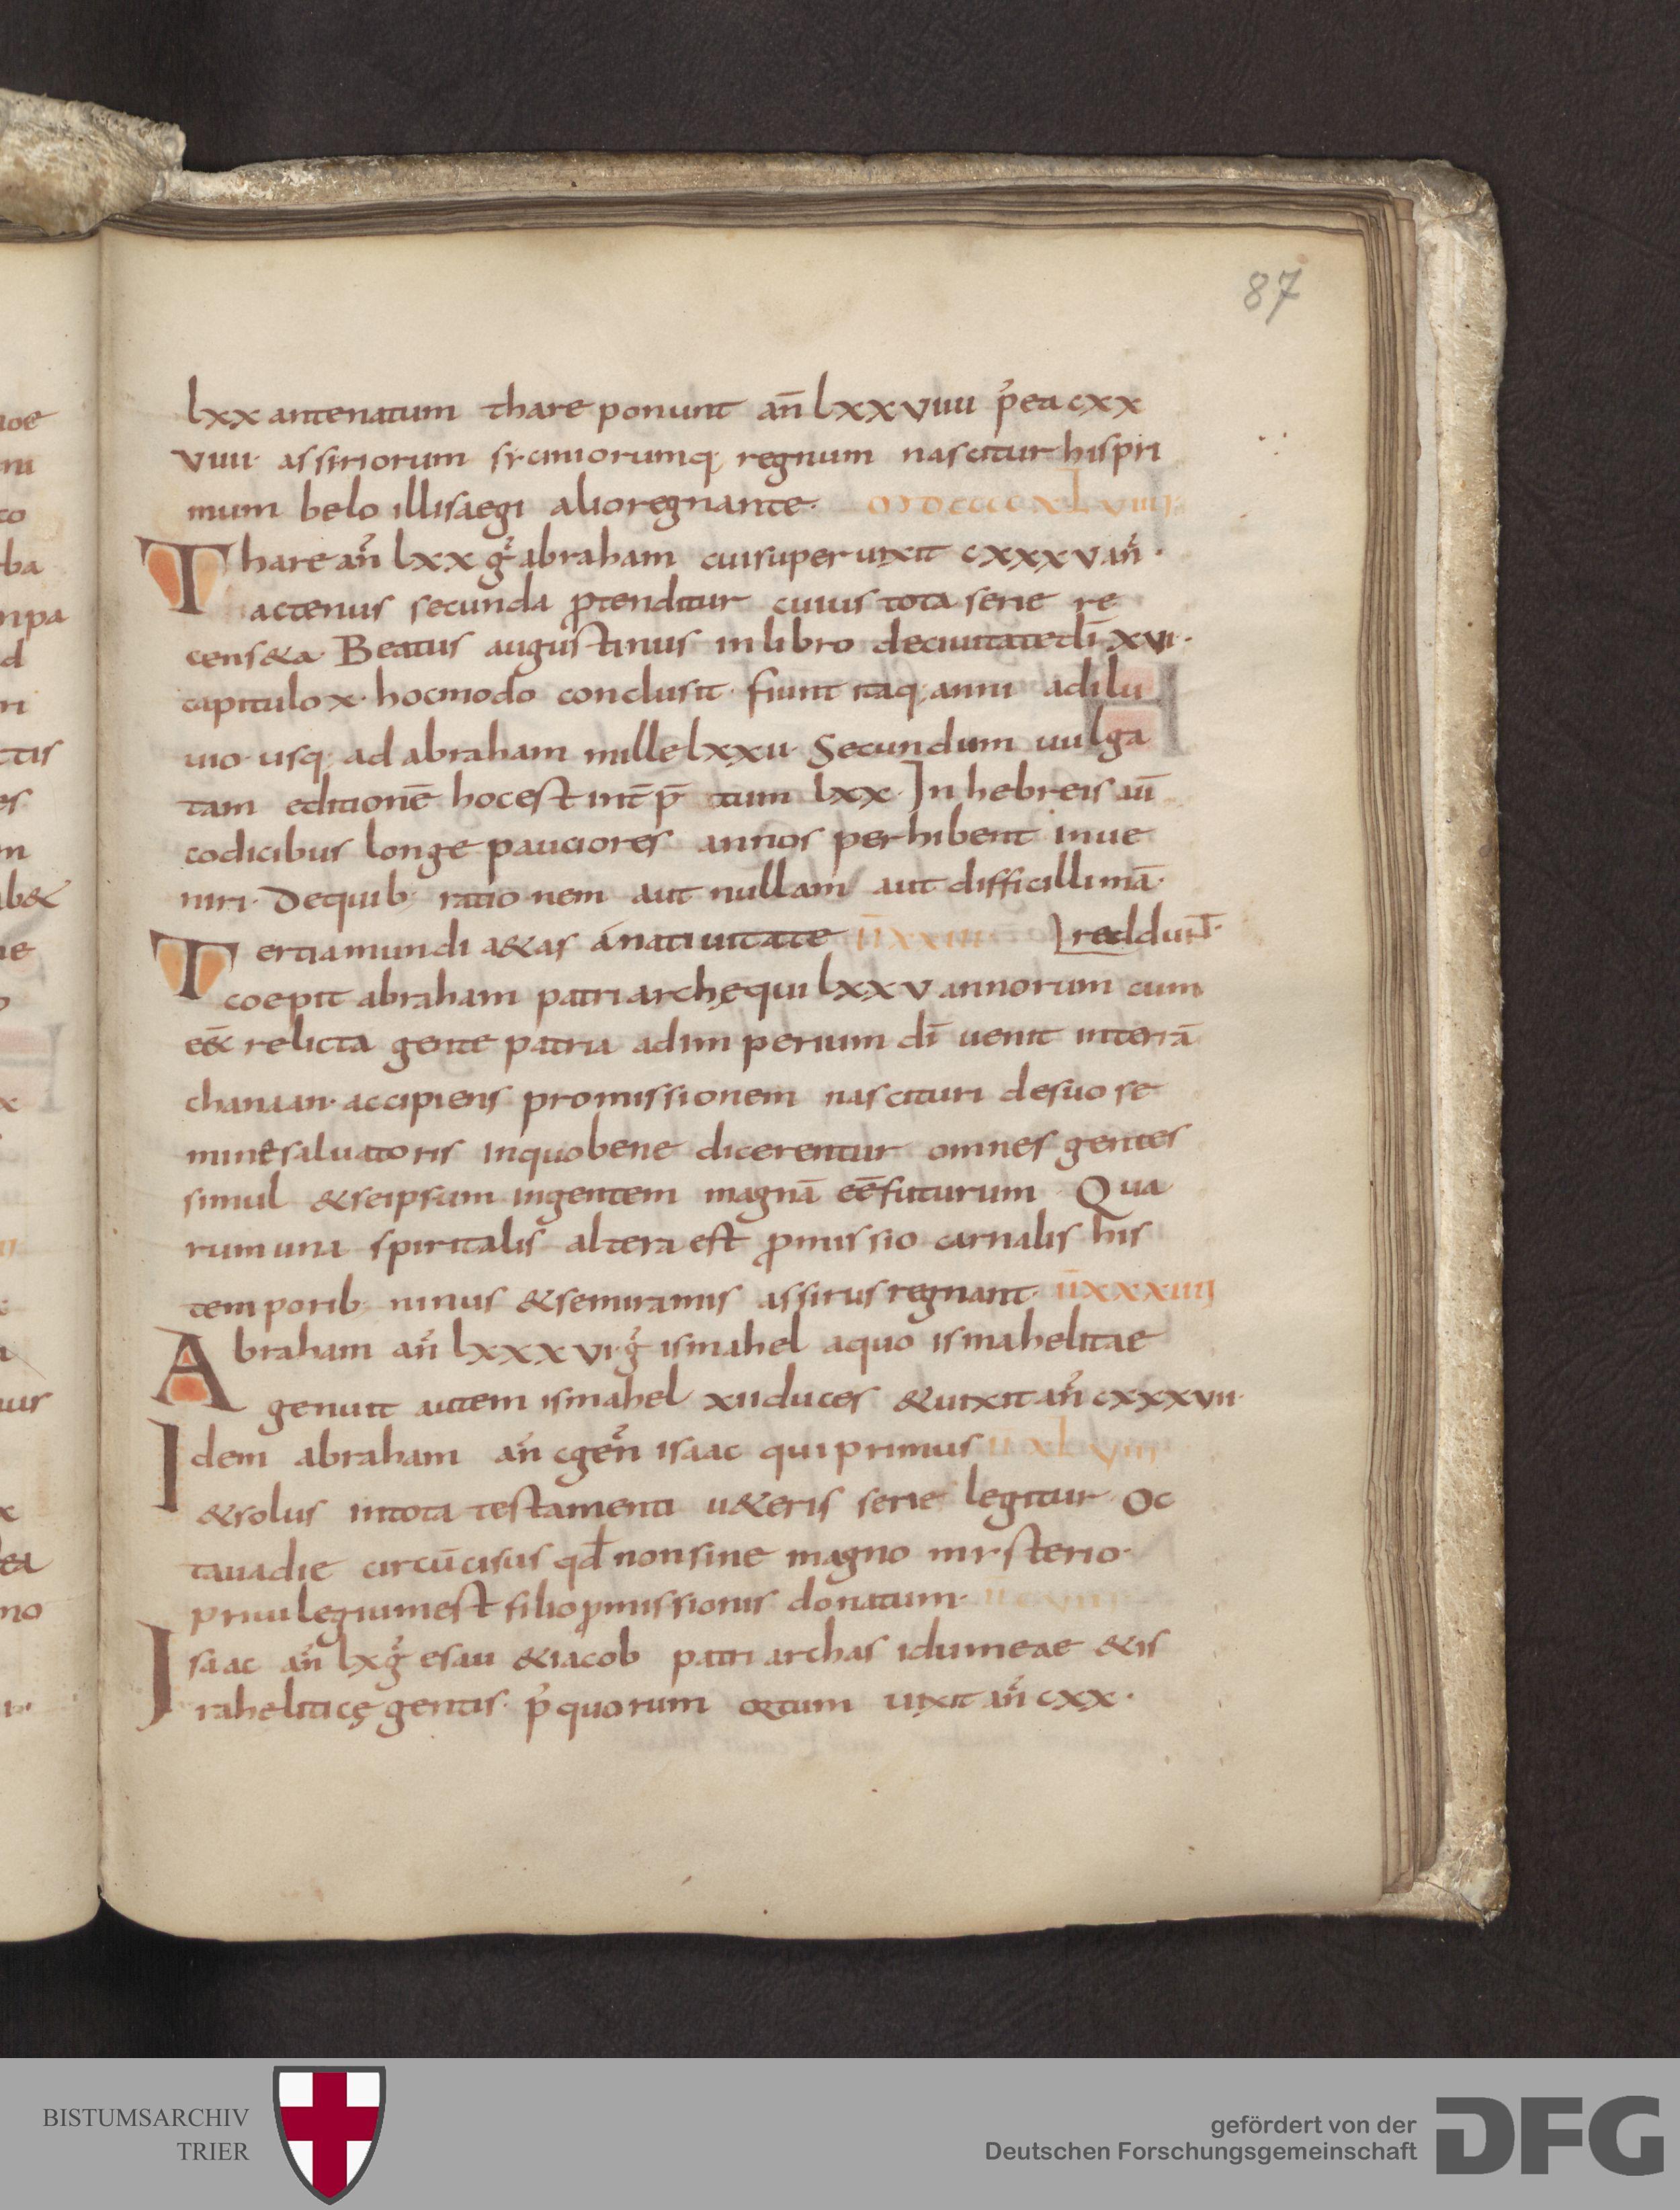 87
lxx antenatum thare ponunt an̄ lxxviiii p̓ea cxx
viiii· assiriorum syciniorumq; regnum nascitur hispri
mum belo illisaegi alioregnante· MDCCCCXLVIIII·
Thare an̄ lxx g̓ abraham cuisuper uixit cxxxv an̄·
actenus secunda ꝓtenditur cuius tota serie re
cens&a· Beatus augustinus inlibro deciuitatedī xvi·
capitulo x· hocmodo conclusit· fiunt itaq; anni adilu
uio· usq; ad abraham mille lxxii· Secundum uulga
tam editionē hocest int̄p̄ tum lxx· In hebreis aū
codicibus longe pauciores annos perhibent inue
niri· Dequib; rationem aut nullam aut difficillimā·
Tertiamundi a&as anatiuitate īīxxiiii reddunt·
coepit abraham patriarchę qui lxxv annorum cum
eēx relicta gente patria adimperium dī uenit interrā
chanaan· accipiens promissionem nascituri desuo se
minesaluatoris inquobene dicerentur omnes gentes
simul &seipsum ingentem magnā eēfuturum· Qua
rumuna spiritalis altera est ꝓmissio carnalis his
temporib; ninus &semiramis assirus regnant· īīxxxiiii
Abraham an̄ lxxxvi· g̓ ismahel aquo ismahelitae
genuit autem ismahel xiiduces &uixit an̄ cxxxvii·
Idem abraham an̄ c gen̄ isaac quiprimus īīxlviii
&solus intota testamenti u&eris serie legitur oc
tauadie circūcisus qđ nonsine magno mysterio·
priuilegiumest filioꝓmissionis donatum·
Isaac an̄ lx g̓ esau &iacob patriarchas idumeae &is
raheliticę gentis· p̓ quorum ortum uixit an̄ cxx·
BISTUMSARCHIV
TRIER
gefördert von der
Deutschen Forschungsgemeinschaft
DFG